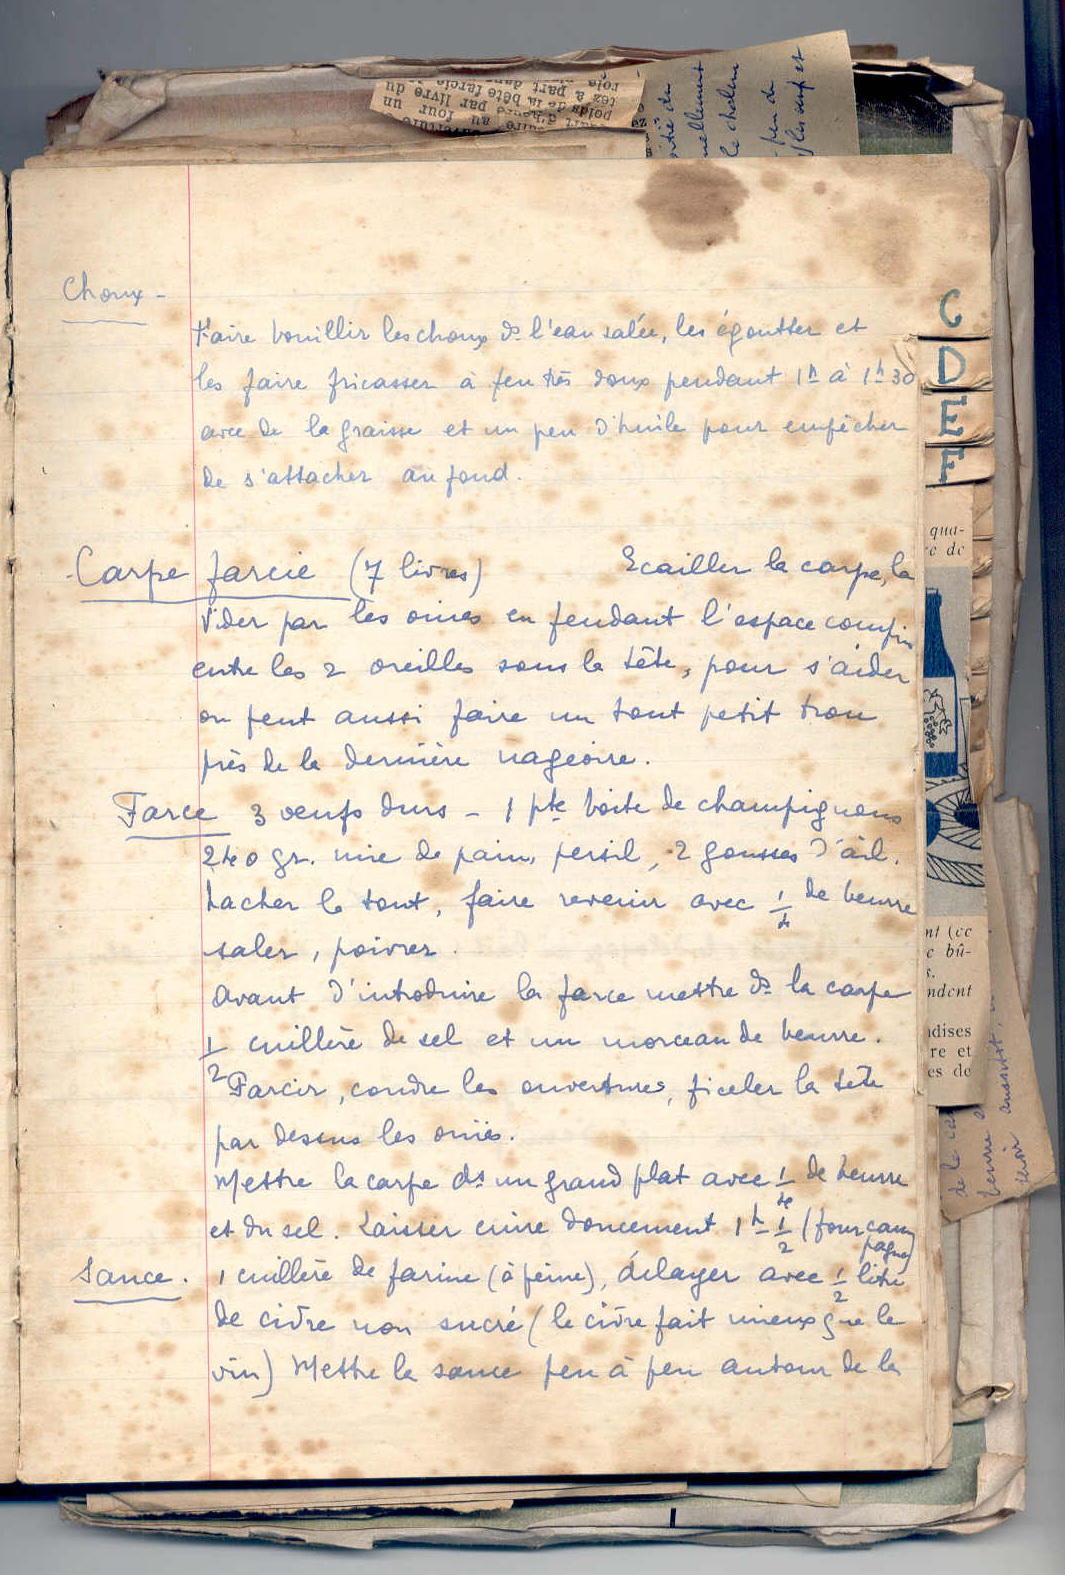 Choux -
Faire bouillir les choux ds l'eau salée, les égoutter et
les faire fricasser à feu très doux pendant 1h à 1h 30
avec de la graisse et un peu d'huile pour empêcher
de s'attacher au fond.
Carpe farcie (7 livres) Ecailler la carpe, la
vider par les ouies en fendant l'espace compris
entre les 2 oreilles sous la tête, pour s'aider
on peut aussi faire un tout petit trou
près de la dernière nageoire.
Farce 3 oeufs durs - 1 pte boite de champignons
240 gr. mie de pain, persil, 2 gousses d'ail.
hacher le tout, faire revenir avec 1/4 de beurre
saler, poivrer.
Avant d'introduire la farce mettre ds la carpe
1/2 cuillère de sel et un morceau de beurre.
Farcir, coudre les ouvertures, ficeler la tête
par dessus les ouies.
Mettre la carpe ds un grand plat avec 1/4 de beurre
et du sel. Laisser cuire doucement 1h 1/2 (four campagne)
Sauce. 1 cuillère de farine (à peine), délayer avec 1/2 litre
de cidre non sucré (le cidre fait mieux que le
vin) Mettre la sauce peu à peu autour de la
C
D
E
F
qua-
re de
nt (ce
c bû-
s.
ndent
dises
re et
es de